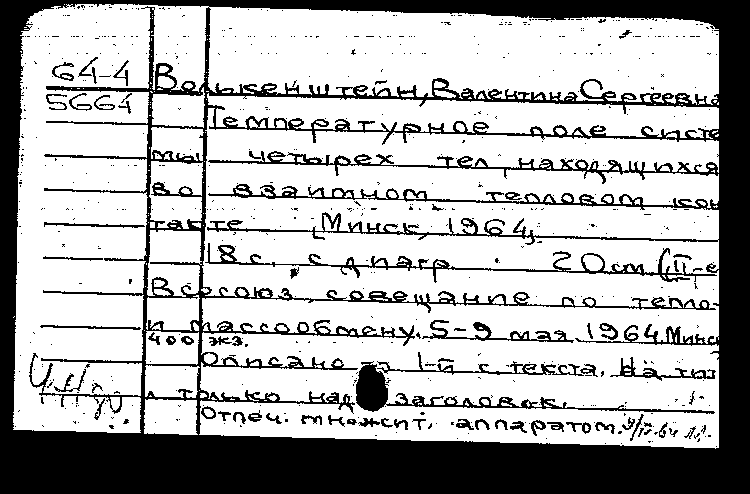 64-4
5664
Волькенштейн, Валентина Сергеевна
Температурное поле систе
мы четырех тел, находящихся
во взаимном тепловом кон
такте [Минск, 1964]
18 с. с диагр. 20 см (II-е
Всесоюз. совещание по тепло-
и массообмену. 5-9 мая 1964. Минск
400 экз.
Описано 1-й с текста. На тит
л только над заголовок.
Отпеч. множит. аппаратом.